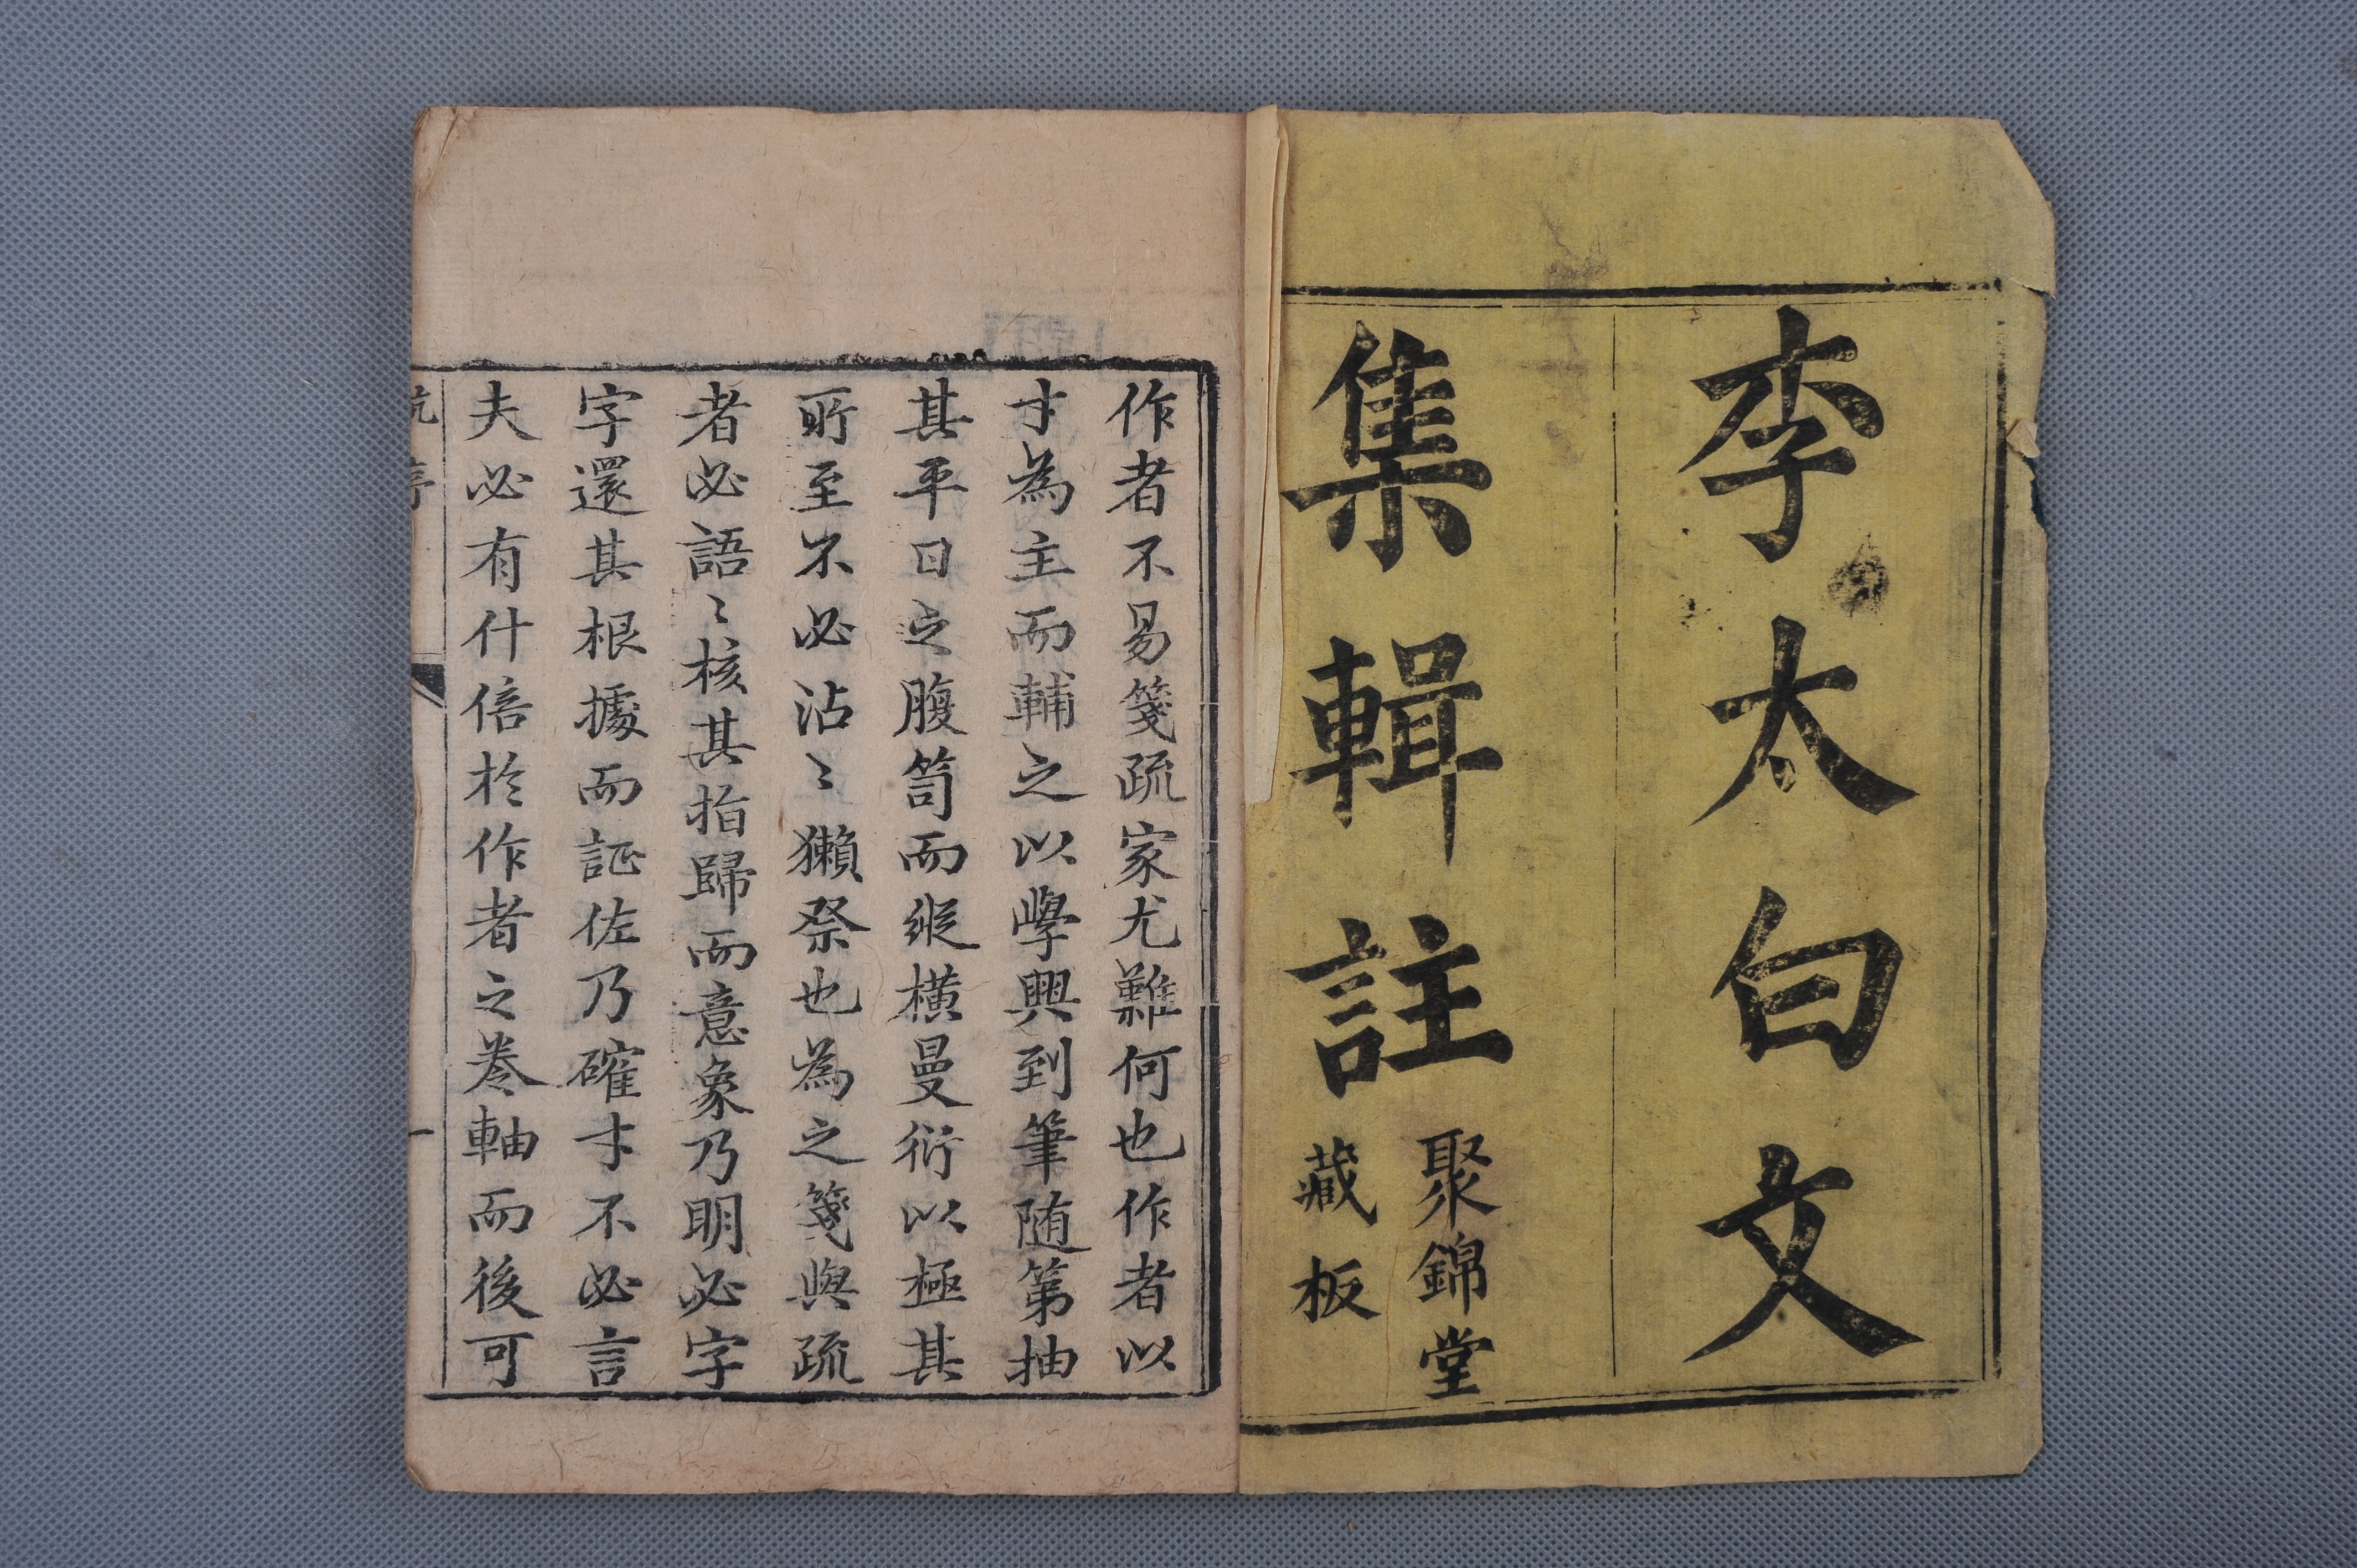 李太白文
集輯註
聚錦堂
藏板
作者不易箋疏家尤難何也作者以
才為主而輔之以學興到筆随第抽
其平日之腹笥而縱橫曼衍以極其
所至不必沾〻獺祭也為之箋與疏
者必語〻核其指歸而意象乃明必字
字還其根據而証佐乃確才不必言
夫必有什倍於作者之卷軸而後可